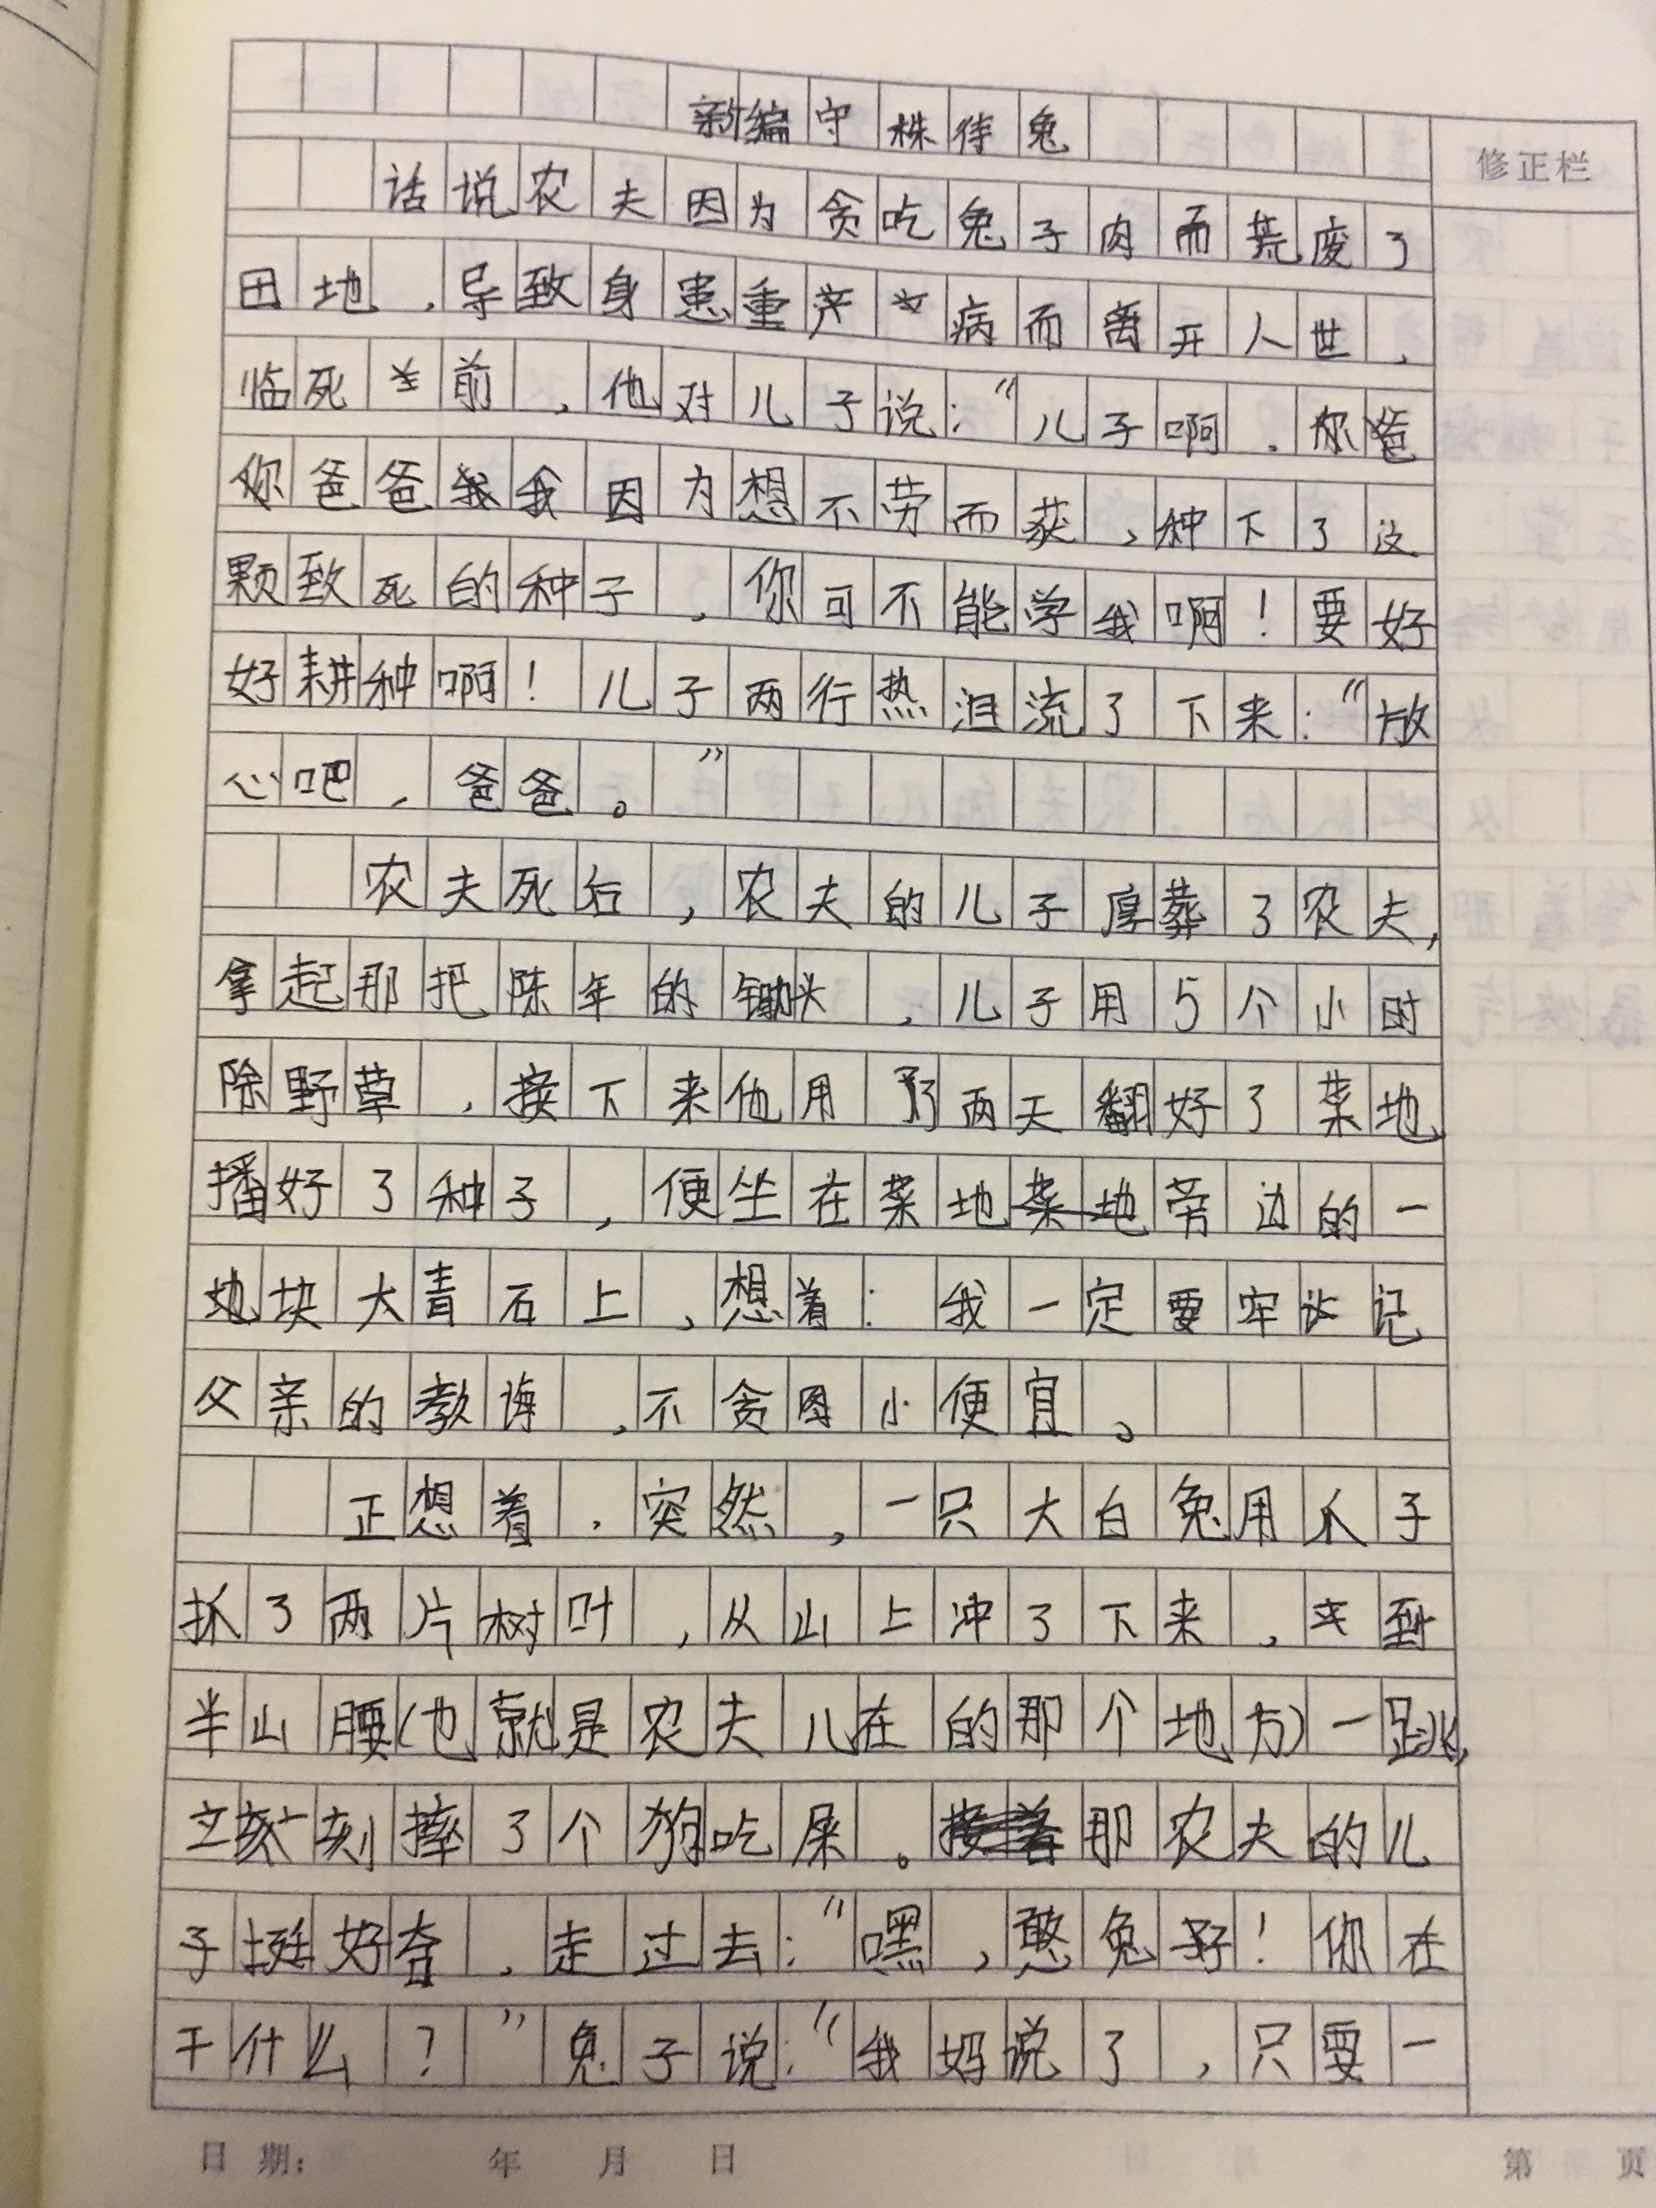 新编守株待兔
修正栏
话说农夫因为贪吃兔子肉而荒废了
田地，导致身患重病而离开人世，
临死前，他对儿子说：“儿子啊，
你爸爸我因为想不劳而获，种下了这
颗致死的种子，你可不能学我啊！要好
好耕种啊！儿子两行热泪流了下来：“放
心吧，爸爸。”
农夫死后，农夫的儿子厚葬了农夫，
拿起那把陈年的锄头，儿子用5个小时
除野草，接下来他用了两天翻好了菜地
播好了种子，便坐在菜地旁边的一
块大青石上，想着：我一定要牢记
父亲的教诲，不贪图小便宜。
正想着，突然，一只大白兔用爪子
抓了两片树叶，从山上冲了下来，到
半山腰（也就是农夫儿在的那个地方）一跳，
立刻摔了个狗吃屎。那农夫的儿
子挺好奇，走过去：“嘿，憨兔子！你在
干什么？”兔子说：“我妈说了，只要一
日期： 年 月 日
第 页